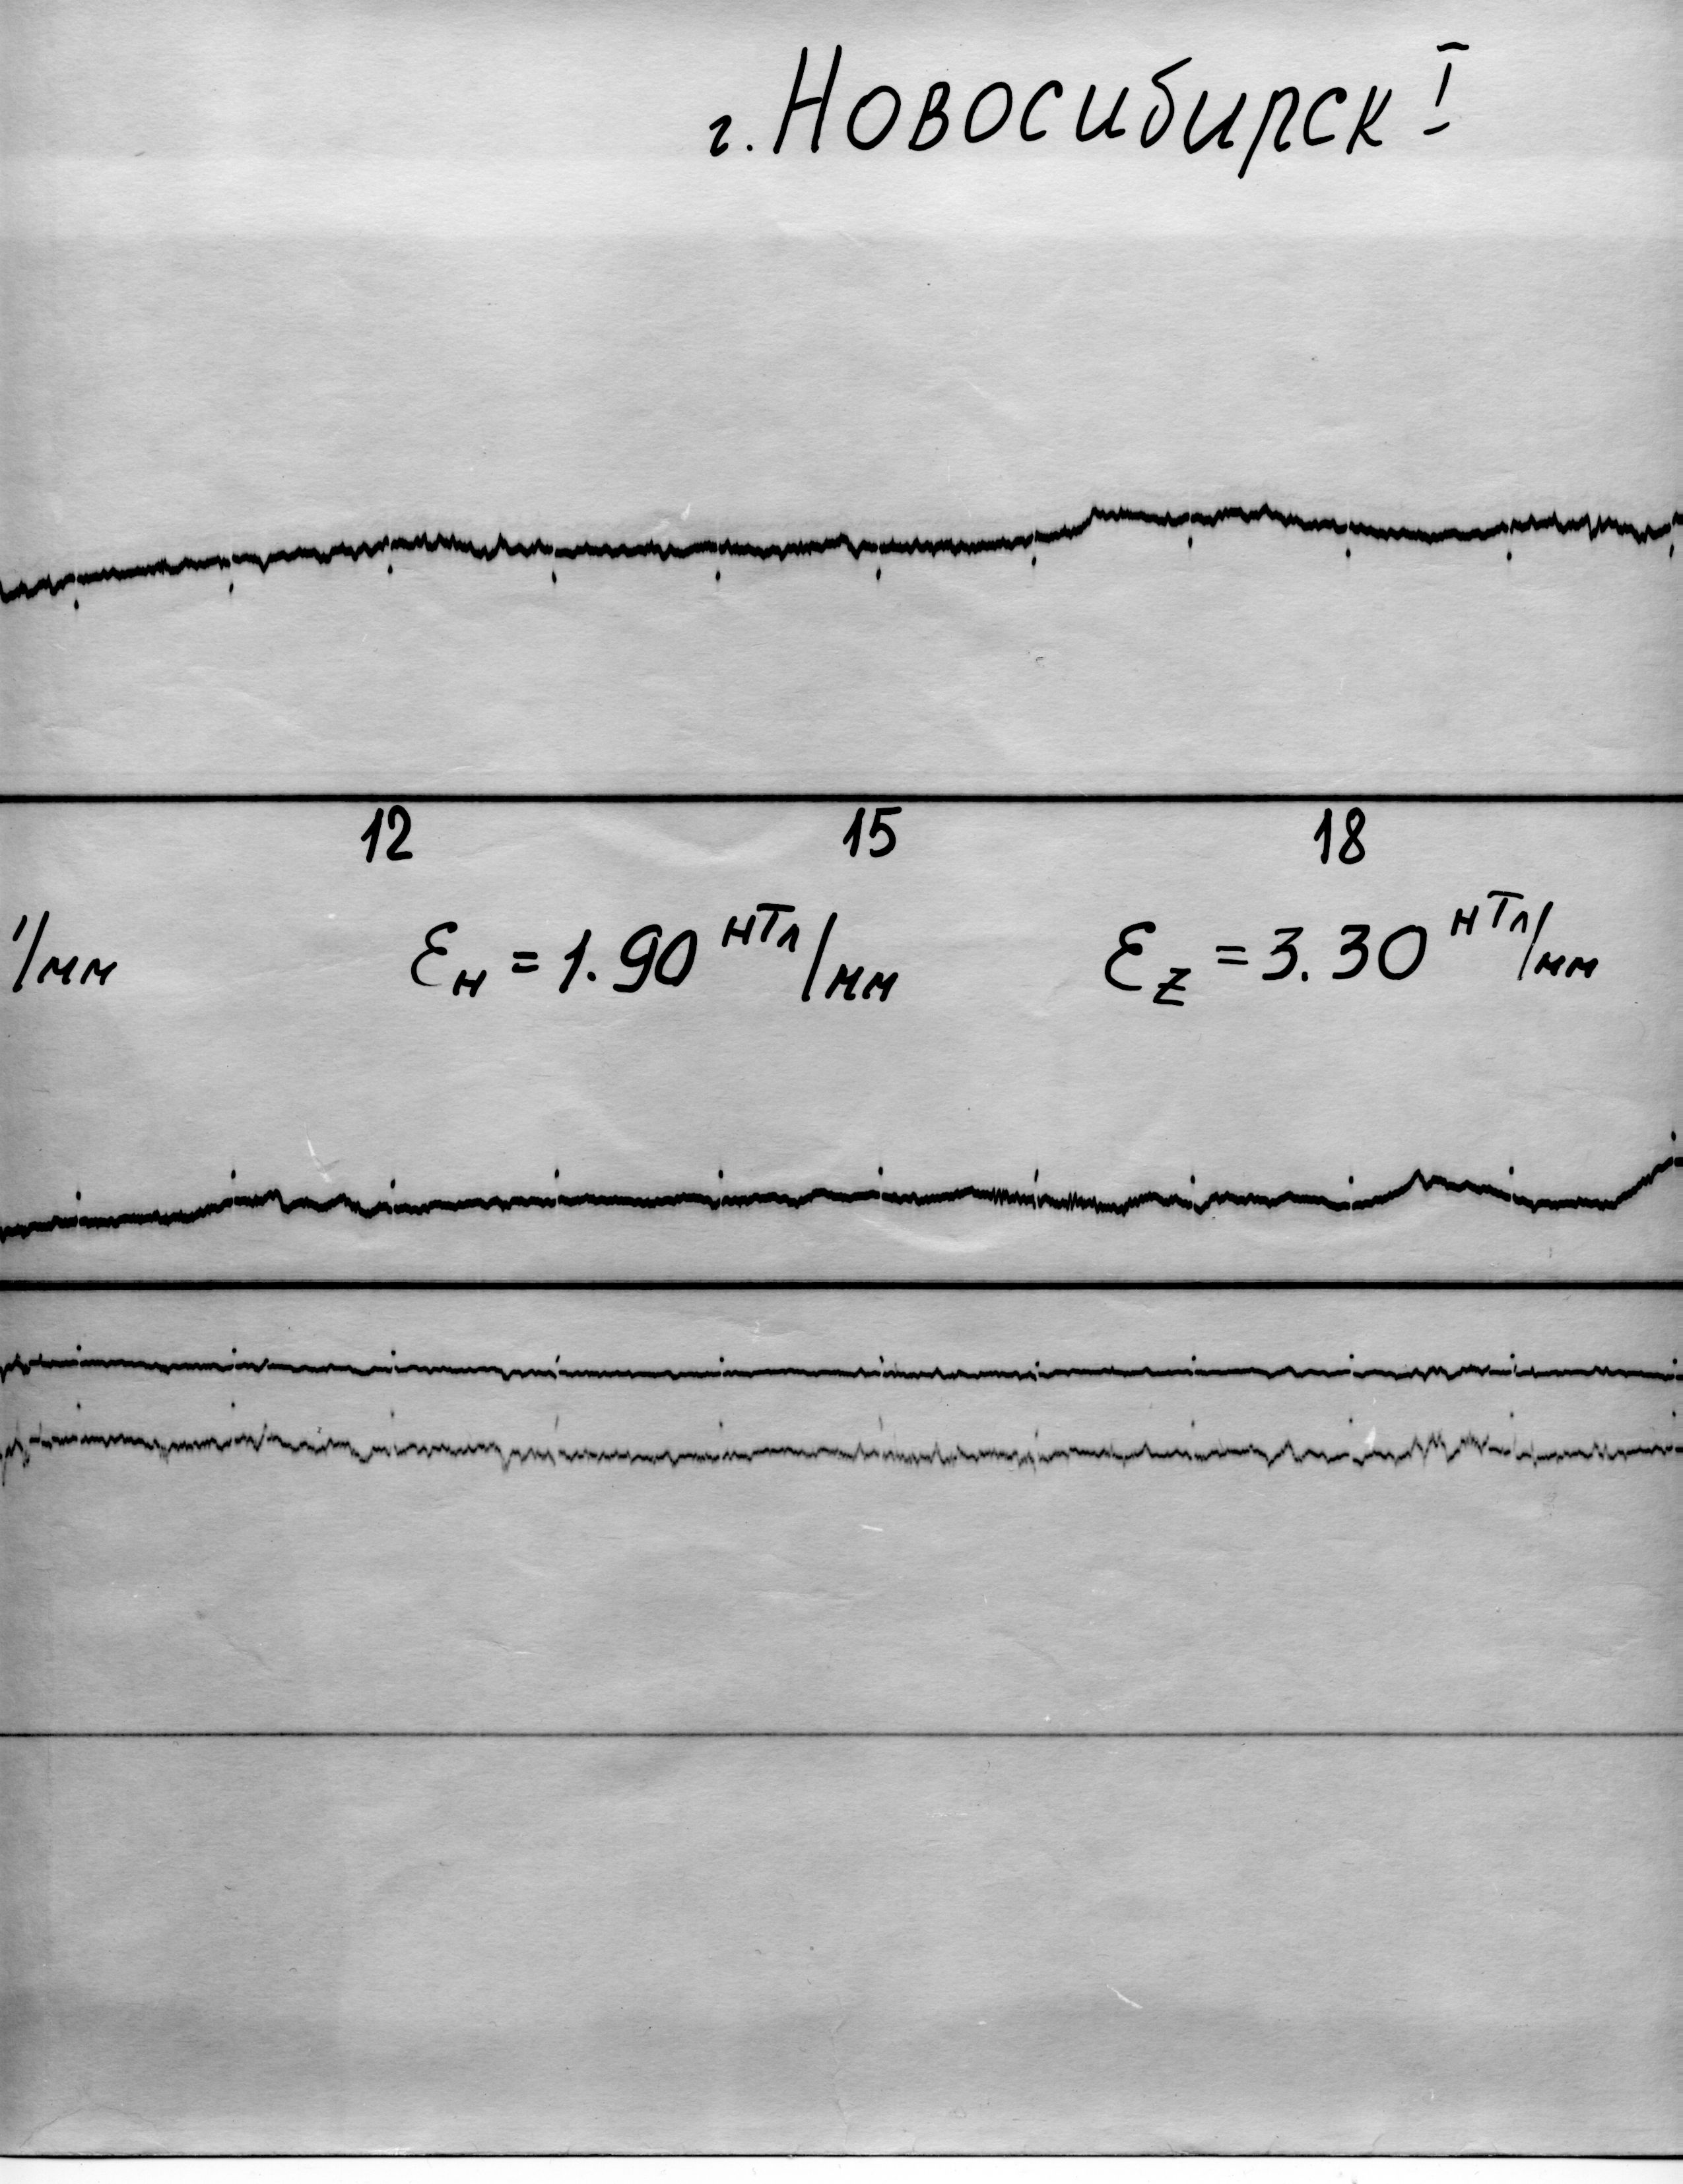 г. Новосибирск I
12 15 18
'/мм Ɛн = 1.90 нТл/мм Ɛz = 3.30 нТл/мм